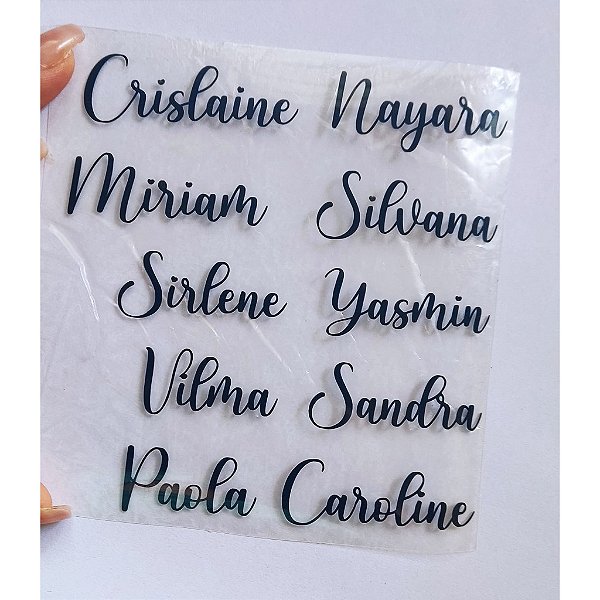 Crislaine Nayara
Miriam Silvana
Sirlene Yasmin
Vilma Sandra
Paola Caroline